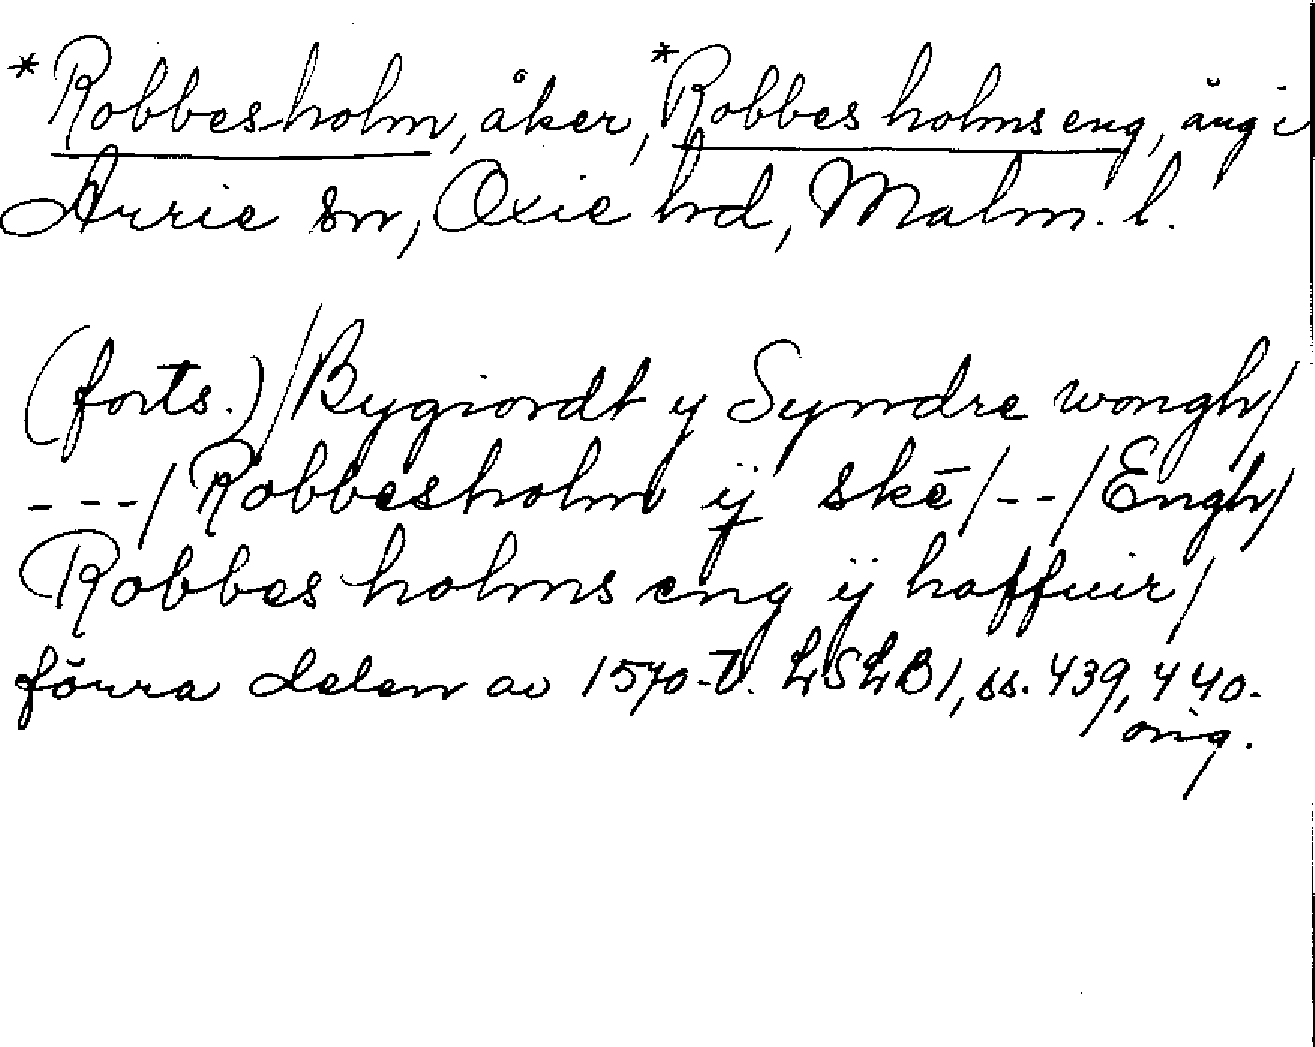 *Robbesholm, åker, *Robbes holms eng, äng i
Arrie sn, Oxie hd, Malm. l.
(forts.)/Bygiordt y Syndre wongh/
---/Robbesholm ij skē/--/Engh/
Robbes holms eng ij haffuir/
förra delen av 1570-t. LSLB1, ss. 439, 440.
orig.